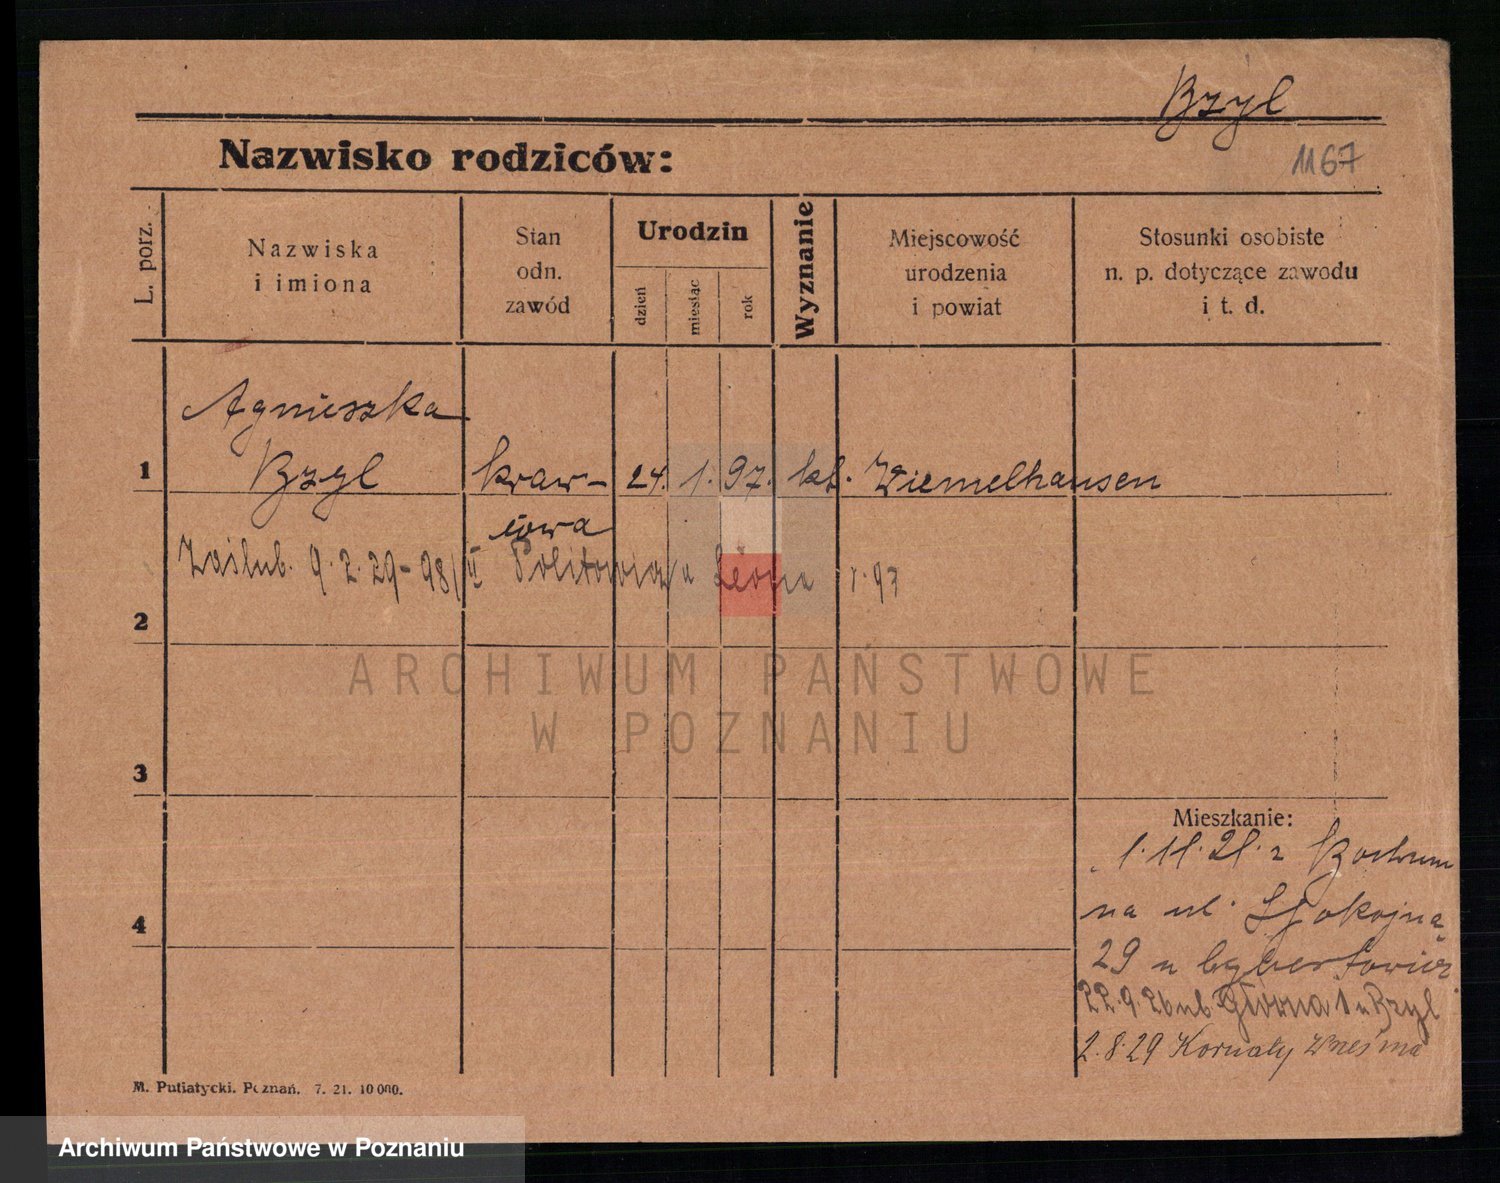 Bzyl
Nazwisko rodziców:
1167
L. porz.
Nazwiska
i imiona
Stan
odn.
zawód
Urodzin
dzień
miesiąc
rok
Wyznanie
Miejscowość
urodzenia
i powiat
Stosunki osobiste
n. p. dotyczące zawodu
i t. d.
Agnieszka
1 Bzyl kraw- 24. 1. 97. kat. Wiemelhausen
cowa
Zaślub. 9.2.29-98/II Leona r. 97
2
ARCHIWUM PAŃSTWOWE
W POZNANIU
3
Mieszkanie:
1.11.21. z Bochum
4
na ul. Spokojną
29 u
22.9.26 ul. Główna 1 u Bzyl
2.8.29 Kornaty Września
M. Putiatycki. Poznań. 7. 21. 10 000.
Archiwum Państwowe w Poznaniu